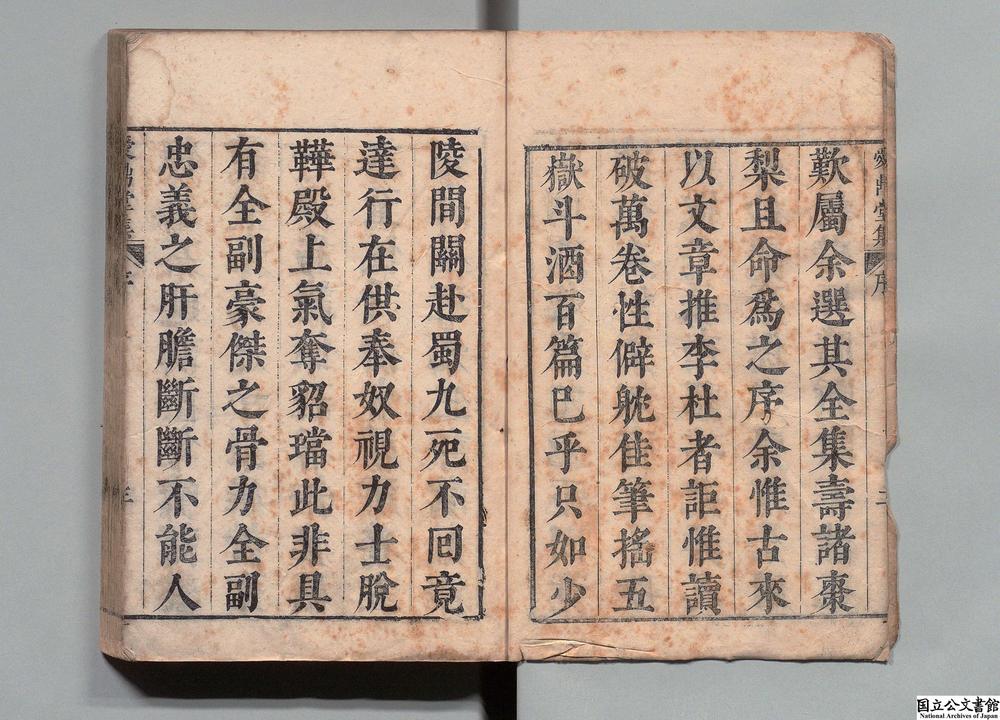 歎屬余選其全集壽諸棗
梨且命爲之序余惟古來
以文章推李杜者詎惟讀
破萬卷性僻躭佳筆搖五
嶽斗酒百篇巳乎只如少
陵間關赴蜀九死不回竟
達行在供奉奴視力士脫
鞾殿上氣奪貂璫此非具
有全副豪傑之骨力全副
忠義之肝膽斷斷不能人
序
国立公文書館
National Archives of Japan